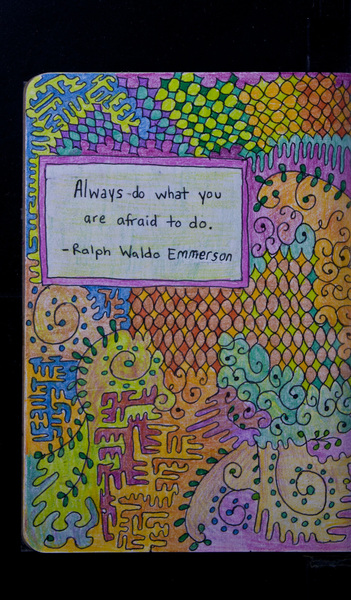 Always do what you
are afraid to do.
-Ralph Waldo Emmerson